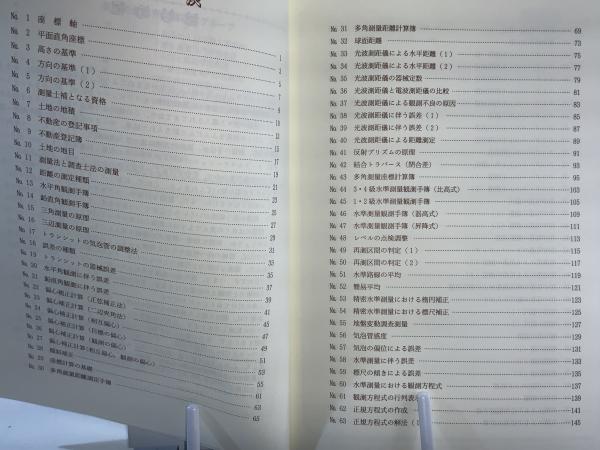 No. 1 座標軸 1
No. 2 平面直角座標 3
No. 3 高さの基準 5
No. 4 方向の基準(1) 7
No. 5 方向の基準(2) 9
No. 6 測量士補となる資格
No. 7 土地の地積
No. 8 不動産の登記事項
No. 9 不動産登記簿
No. 10 土地の地目
No. 11 測量法と調査士法の測量
No. 12 距離の測定種類
No. 13 水平角観測手簿
No. 14 鉛直角観測手簿
No. 15 三角測量の原理
No. 16 三辺測量の原理
No. 17 トランシットの気泡管の調整法
No. 18 誤差の種類
No. 19 トランシットの器械誤差
No. 20 水平角観測に伴う誤差
No. 21 鉛直角観測に伴う誤差
No. 22 偏心補正計算(正弦補正法)
No. 23 偏心補正計算(二辺夾角法)
No. 24 偏心補正計算(相互偏心)
No. 25 偏心補正計算(目標の偏心)
No. 26 偏心補正計算(観測の偏心)
No. 27 偏心補正計算(相互偏心、観測の偏心)
No. 28
No. 29 座標計算の基礎 63
No. 30 多角測量距離測定手簿 65
No. 31 多角測量距離計算簿 69
No. 32 球面距離 73
No. 33 光波測距儀による水平距離(1) 75
No. 34 光波測距儀による水平距離(2) 77
No. 35 光波測距儀の器械定数 79
No. 36 光波測距儀と電波測距儀の比較 81
No. 37 光波測距儀による観測不良の原因 83
No. 38 光波測距儀に伴う誤差(1) 85
No. 39 光波測距儀に伴う誤差(2) 87
No. 40 光波測距儀による距離測定 89
No. 41 反射プリズムの原理 91
No. 42 結合トラバース(閉合差) 93
No. 43 多角測量座標計算簿 95
No. 44 3・4級水準測量観測手簿(比高式) 103
No. 45 1・2級水準測量観測手簿 105
No. 46 水準測量観測手簿(器高式) 109
No. 47 水準測量観測手簿(昇降式) 111
No. 48 レベルの点検調整 113
No. 49 再測区間の判定(1) 115
No. 50 再測区間の判定(2) 117
No. 51 水準路線の平均 119
No. 52 簡易平均 121
No. 53 精密水準測量における楕円補正 123
No. 54 精密水準測量における標尺補正 125
No. 55 地盤変動調査測量 127
No. 56 気泡管感度 129
No. 57 気泡の偏位による誤差 131
No. 58 水準測量に伴う誤差 133
No. 59 標尺の傾きによる誤差 135
No. 60 水準測量における観測方程式 137
No. 61 観測方程式の行列表示 139
No. 62 正規方程式の作成 141
No. 63 正規方程式の解法(1) 145